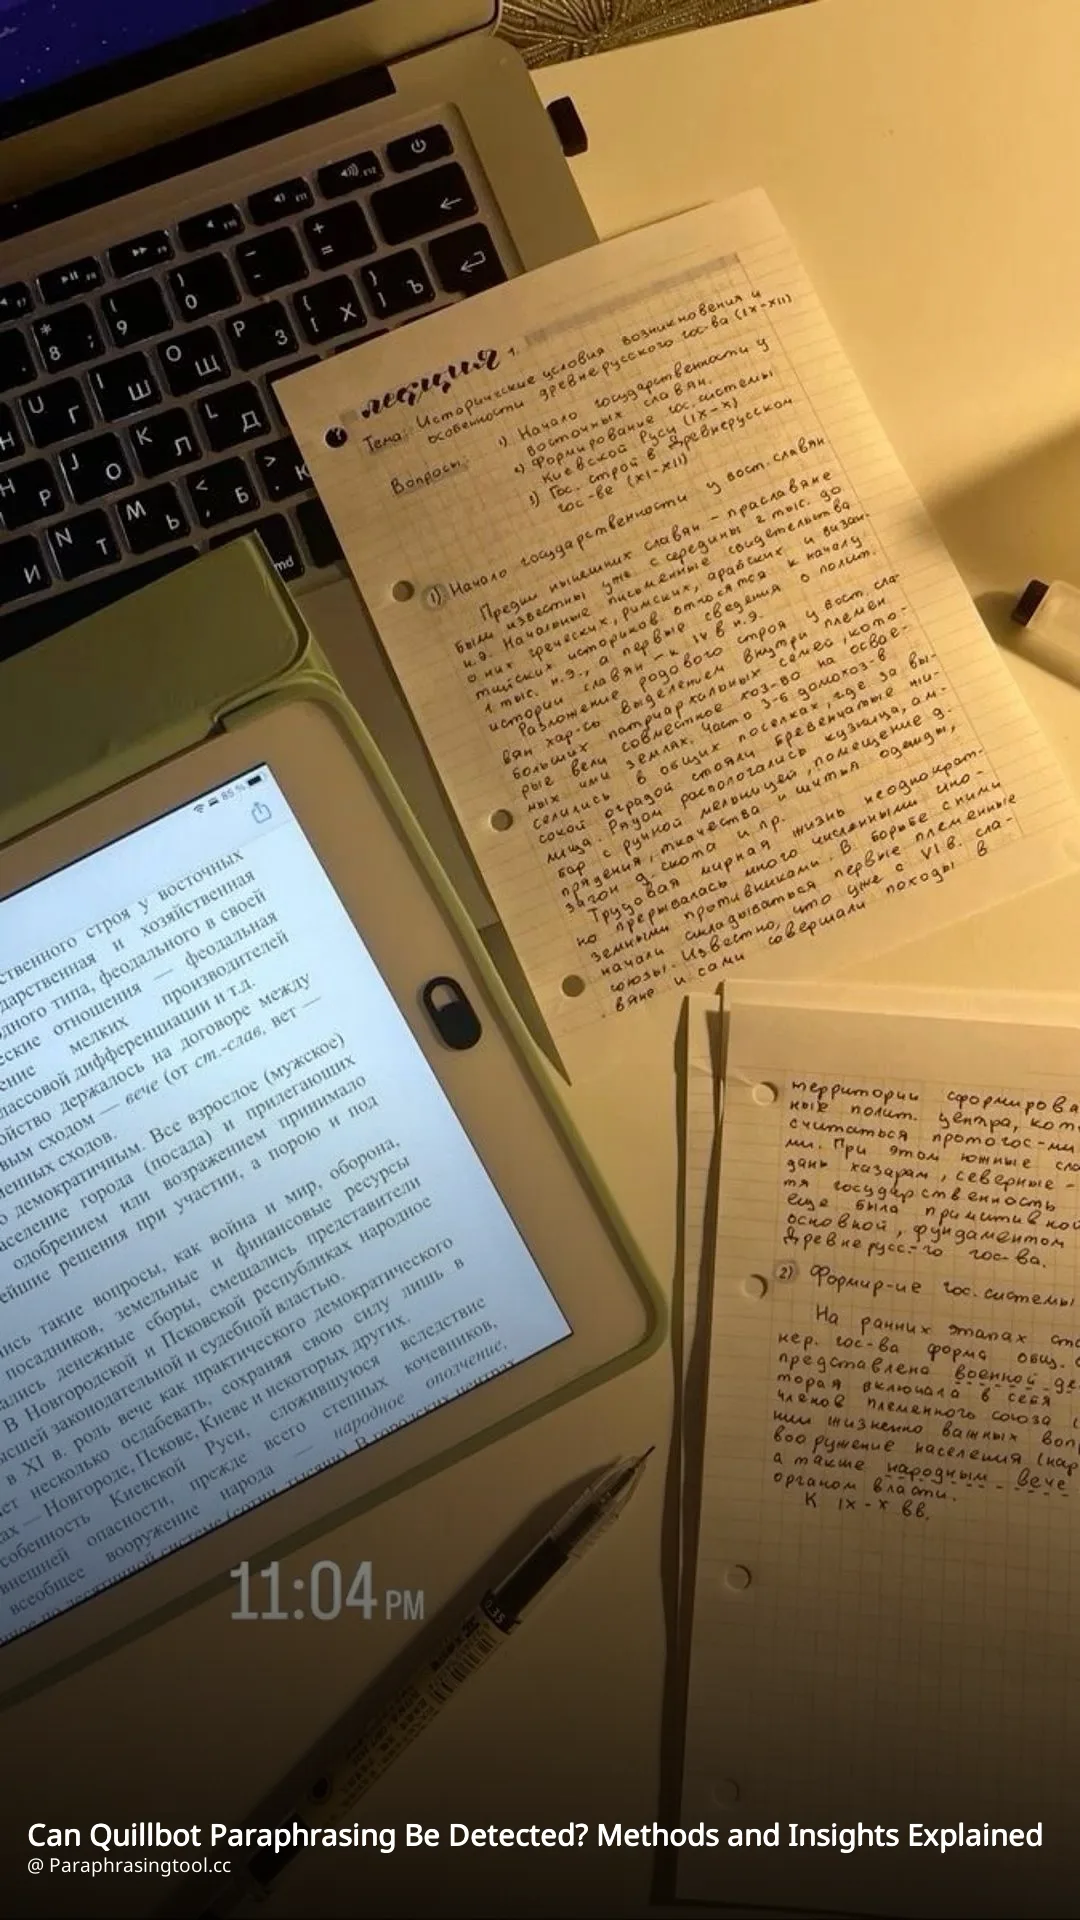 лекция 1.
Тема: Исторические условия возникновения и
особенности древнерусского гос-ва (IX-XII)
Вопросы:
1) Начало государственности у
восточных славян.
2) Формирование гос. системы
Киевской Руси (IX-X)
3) Гос. строй в Древнерусском
гос-ве (XI-XII)
1) Начало государственности у вост. славян
Предки нынешних славян - праславяне
были известны уже с середины 2 тыс. до
н.э. Начальные письменные свидетельства
о них греческих, римских, арабских и визан-
тийских историков относятся к началу
1 тыс. н.э., а первые сведения о полит.
истории славян - к IV в н.э.
Разложение родового строя у вост. сла-
вян хар-сь выделением внутри племен
больших патриархальных семей, кото-
рые вели совместное хоз-во на освое-
ных ими землях. Часто 3-6 домохоз-в
селились в общих поселках, где за вы-
сокой оградой стояли бревенчатые жи-
лища. Рядом располагались кузница, ам-
бар с ручной мельницей, помещение д.
прядения, ткачества и шитья одежды,
загон д. скота и пр.
Трудовая мирная жизнь неоднократ-
но прерывалась многочисленными ино-
земными противниками. В борьбе с ними
начали складываться первые племенные
союзы. Известно, что уже с VI в. сла-
вяне и сами совершали походы в
территории сформирова
ные полит. центра, кот
считаться протогос-ми
ми. При этом южные сла
дань хазарам, северные -
тя государственность
еще была примитивной
основной, фундаментом
Древнерусс-го гос-ва.
2) Формир-ие гос. системы
На ранних этапах ста
нер. гос-ва форма общ.
представлена военной де
торая включала в себя
членов племенного союза (
нии жизненно важных вопр
вооружение населения (нар
а также народным вече
органом власти.
К IX-X вв.
85 %
ственного строя у восточных
дарственная и хозяйственная
дного типа, феодального в своей
ские отношения — феодальная
ение мелких производителей
лассовой дифференциации и т.д.
ойство держалось на договоре между
вым сходом — вече (от ст.-слав. вет —
менных сходов.
о демократичным. Все взрослое (мужское)
аселение города (посада) и прилегающих
одобрением или возражением принимало
ейшие решения при участии, а порою и под
ись такие вопросы, как война и мир, оборона,
посадников, земельные и финансовые ресурсы
ались денежные сборы, смещались представители
В Новгородской и Псковской республиках народное
сшей законодательной и судебной властью.
в XI в. роль вече как практического демократического
ет несколько ослабевать, сохраняя свою силу лишь в
ах — Новгороде, Пскове, Киеве и некоторых других.
собенность Киевской Руси, сложившуюся вследствие
внешней опасности, прежде всего степных кочевников,
всеобщее вооружение народа — народное ополчение,
11:04 PM
0.35
Can Quillbot Paraphrasing Be Detected? Methods and Insights Explained
@ Paraphrasingtool.cc